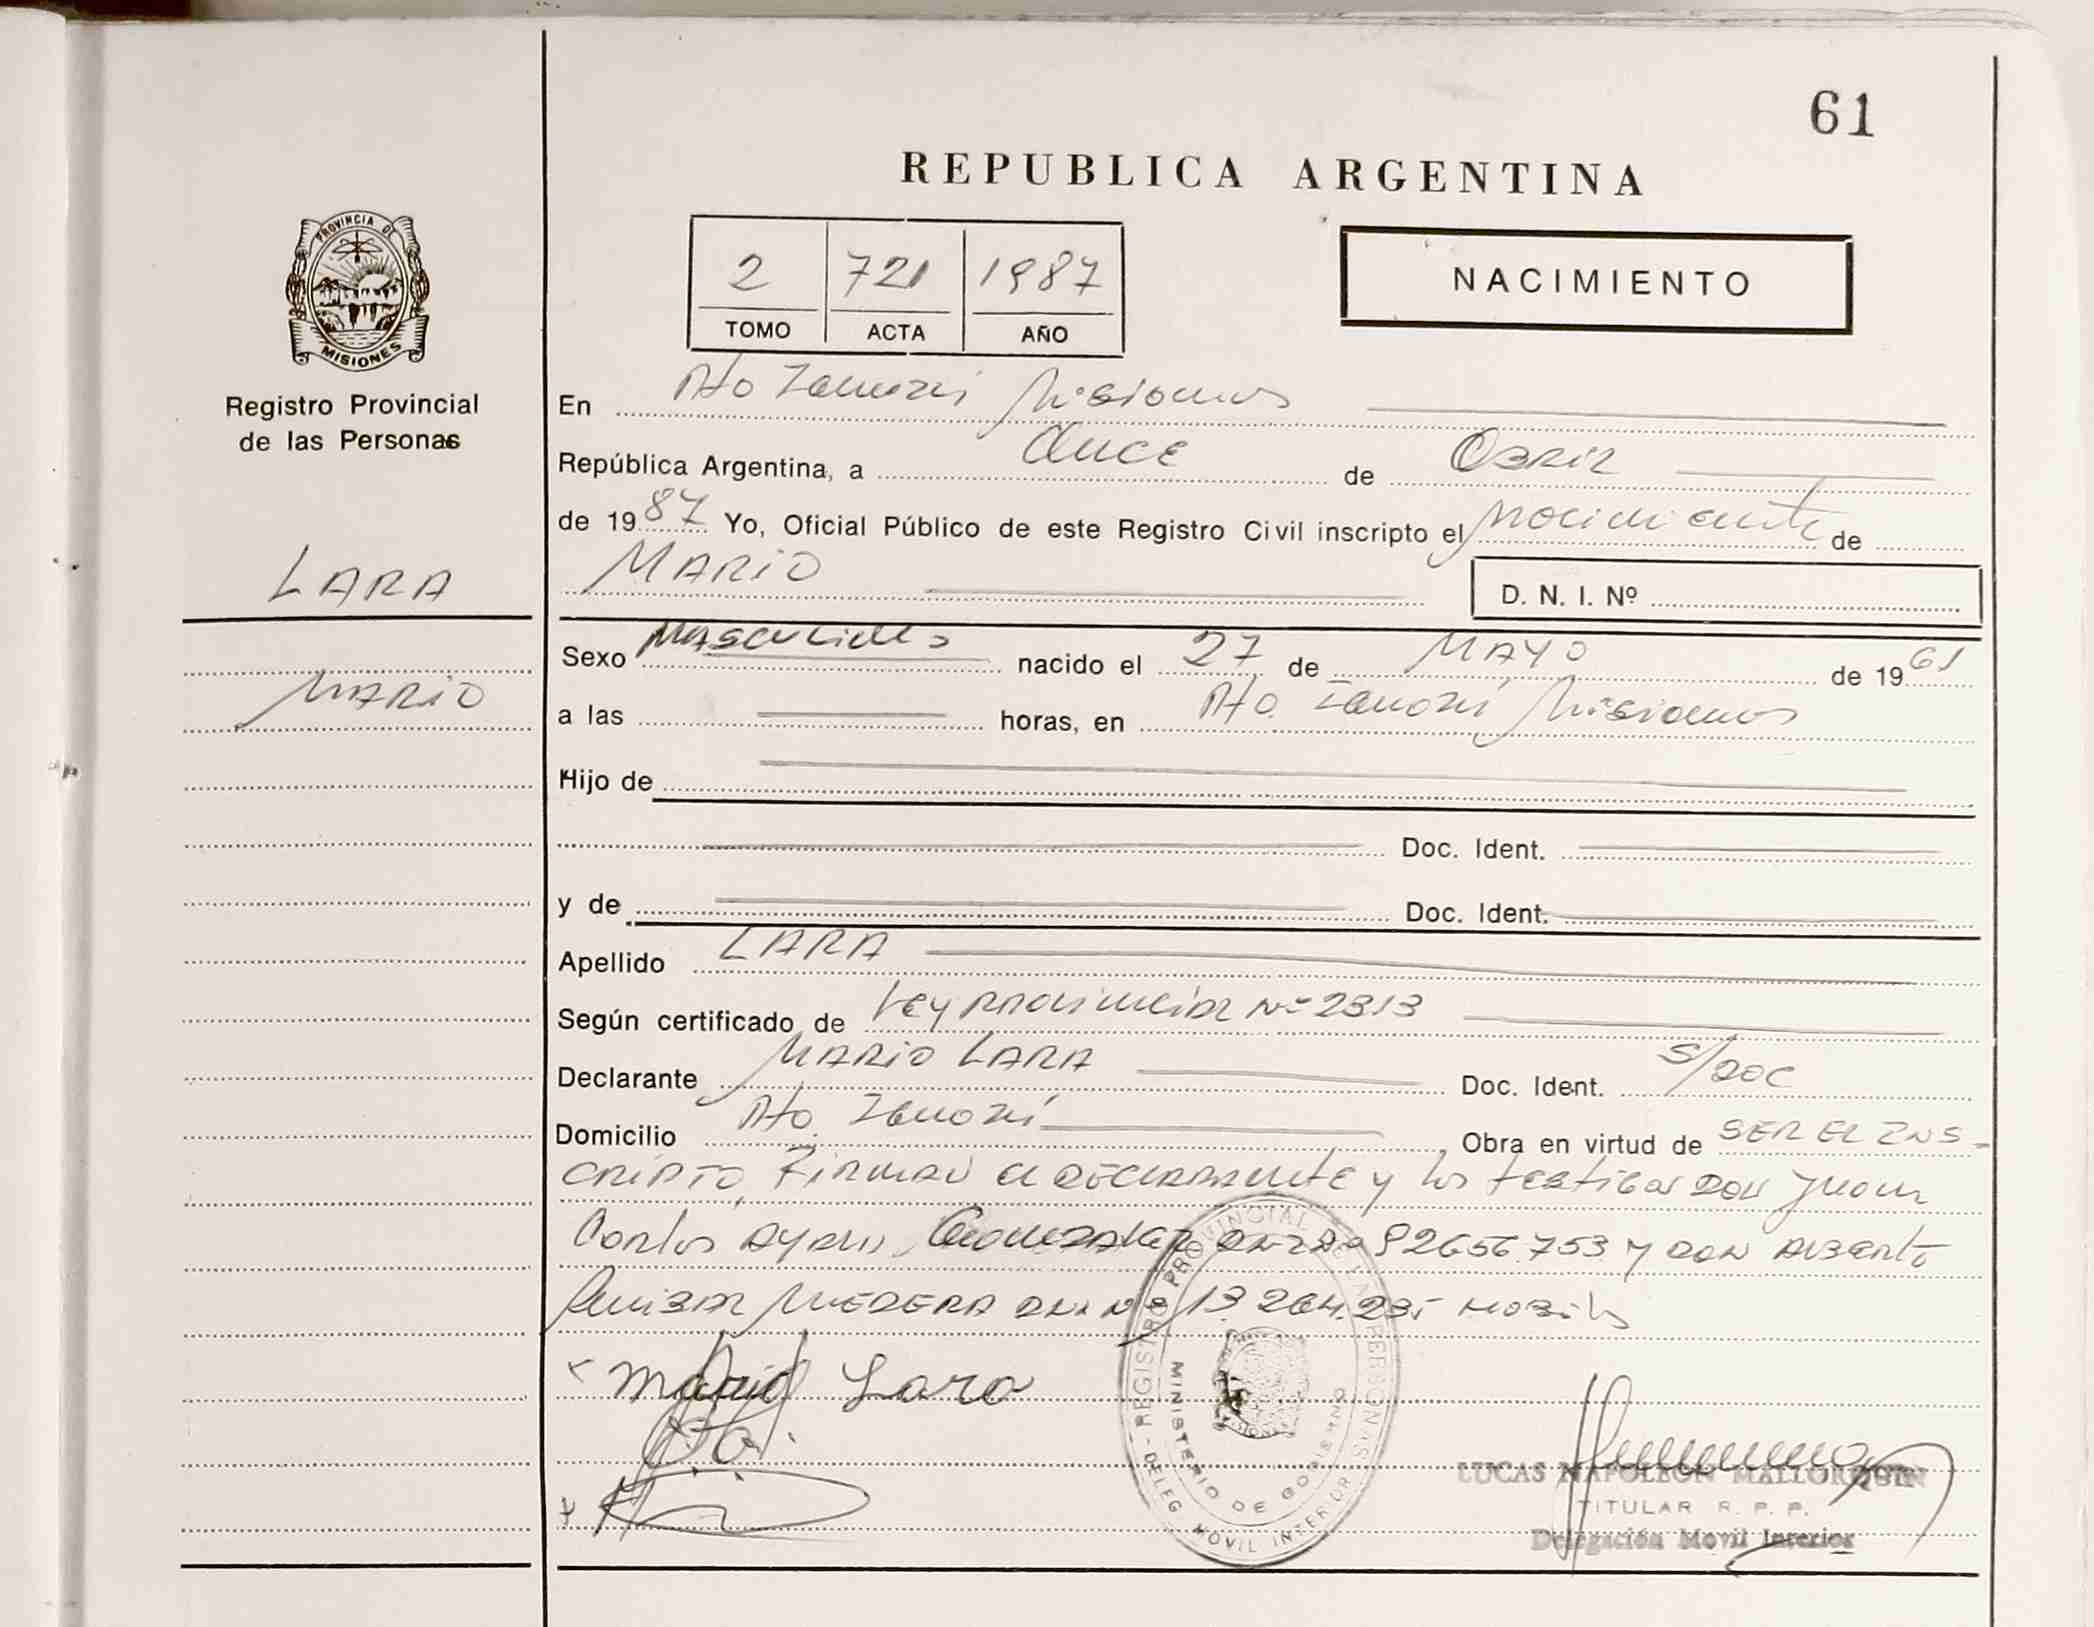 61
REPUBLICA ARGENTINA
PROVINCIA DE
MISIONES
Registro Provincial
de las Personas
2 721 1987
TOMO ACTA AÑO
NACIMIENTO
En Pto Misiones
República Argentina, a Once de Abril
de 1987 Yo, Oficial Público de este Registro Civil inscripto el Nacimiento de
LARA
MARIO
D. N. I. Nº
MARIO
Sexo Masculino nacido el 27 de MAYO de 1961
a las horas, en Pto. Misiones
Hijo de
Doc. Ident.
y de Doc. Ident.
Apellido LARA
Según certificado de Ley Provincial Nº 2313
Declarante MARIO LARA Doc. Ident. S/DOC
Domicilio Pto. Obra en virtud de SER EL INS-
CRIPTO, Firman el declarante y los testigos Don Juan
Carlos Gonzalez 92656.753 y Don Alberto
13.264.235
Mario Lara
REGISTRO PROVINCIAL DE LAS PERSONAS
MINISTERIO DE GOBIERNO
DELEG. MOVIL INTERIOR
LUCAS NAPOLEON MALLORQUIN
TITULAR R. P. P.
Delegación Movil Interior